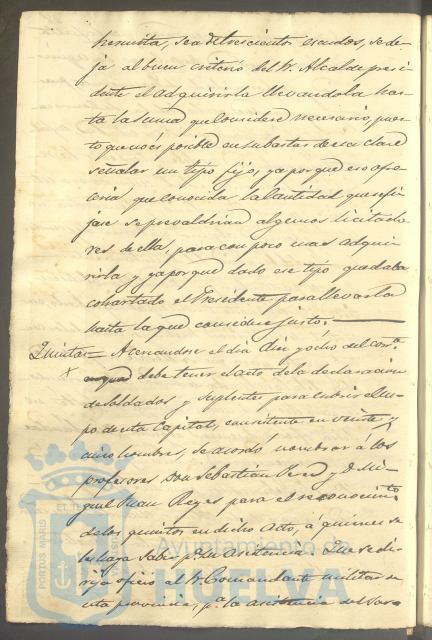 henvista, sea de trescientos escudos, se de-
ja al buen criterio del Sr. Alcalde presi-
dente el adquirirla llevandola has-
ta la suma que considere necesario, pues-
to que no és posible en subastas de esa clase
señalar un tipo fijo, ya porque eso ofre-
ceria que conocida la cantidad que se fi-
jase se prevaldrian algunos licitado-
res de ella, para con poco mas adqui-
rirla y ya porque dado ese tipo quedaba
cohartado el Presidente para llevarla
hasta la que considere justo.
Quintas = Acercandose el dia diez y ocho del corte.
x en que debe tener el acto de la declaracion
de Soldados y Suplentes para cubrir el cu-
po de esta Capital, consistente en veinte y
cinco hombres, se acordó nombrar á los
profesores Don Sebastian Perez y D. Mi-
guel Juan Reyes para el reconocimto.
de los quintos en dicho acto, á quienes se
les haga saber pa. su asistencia. Que se di-
rija oficio al Sr. Comandante militar de
esta provincia, pa. la asistencia del Sarg
EL TE
PORTUS MARIS
Ayuntamiento de
HUELVA